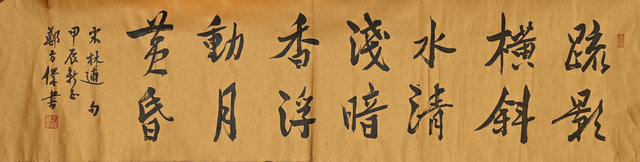 疏影
橫斜
水清
淺暗
香浮
動月
黃昏
宋林逋句
甲辰新正
鄭書